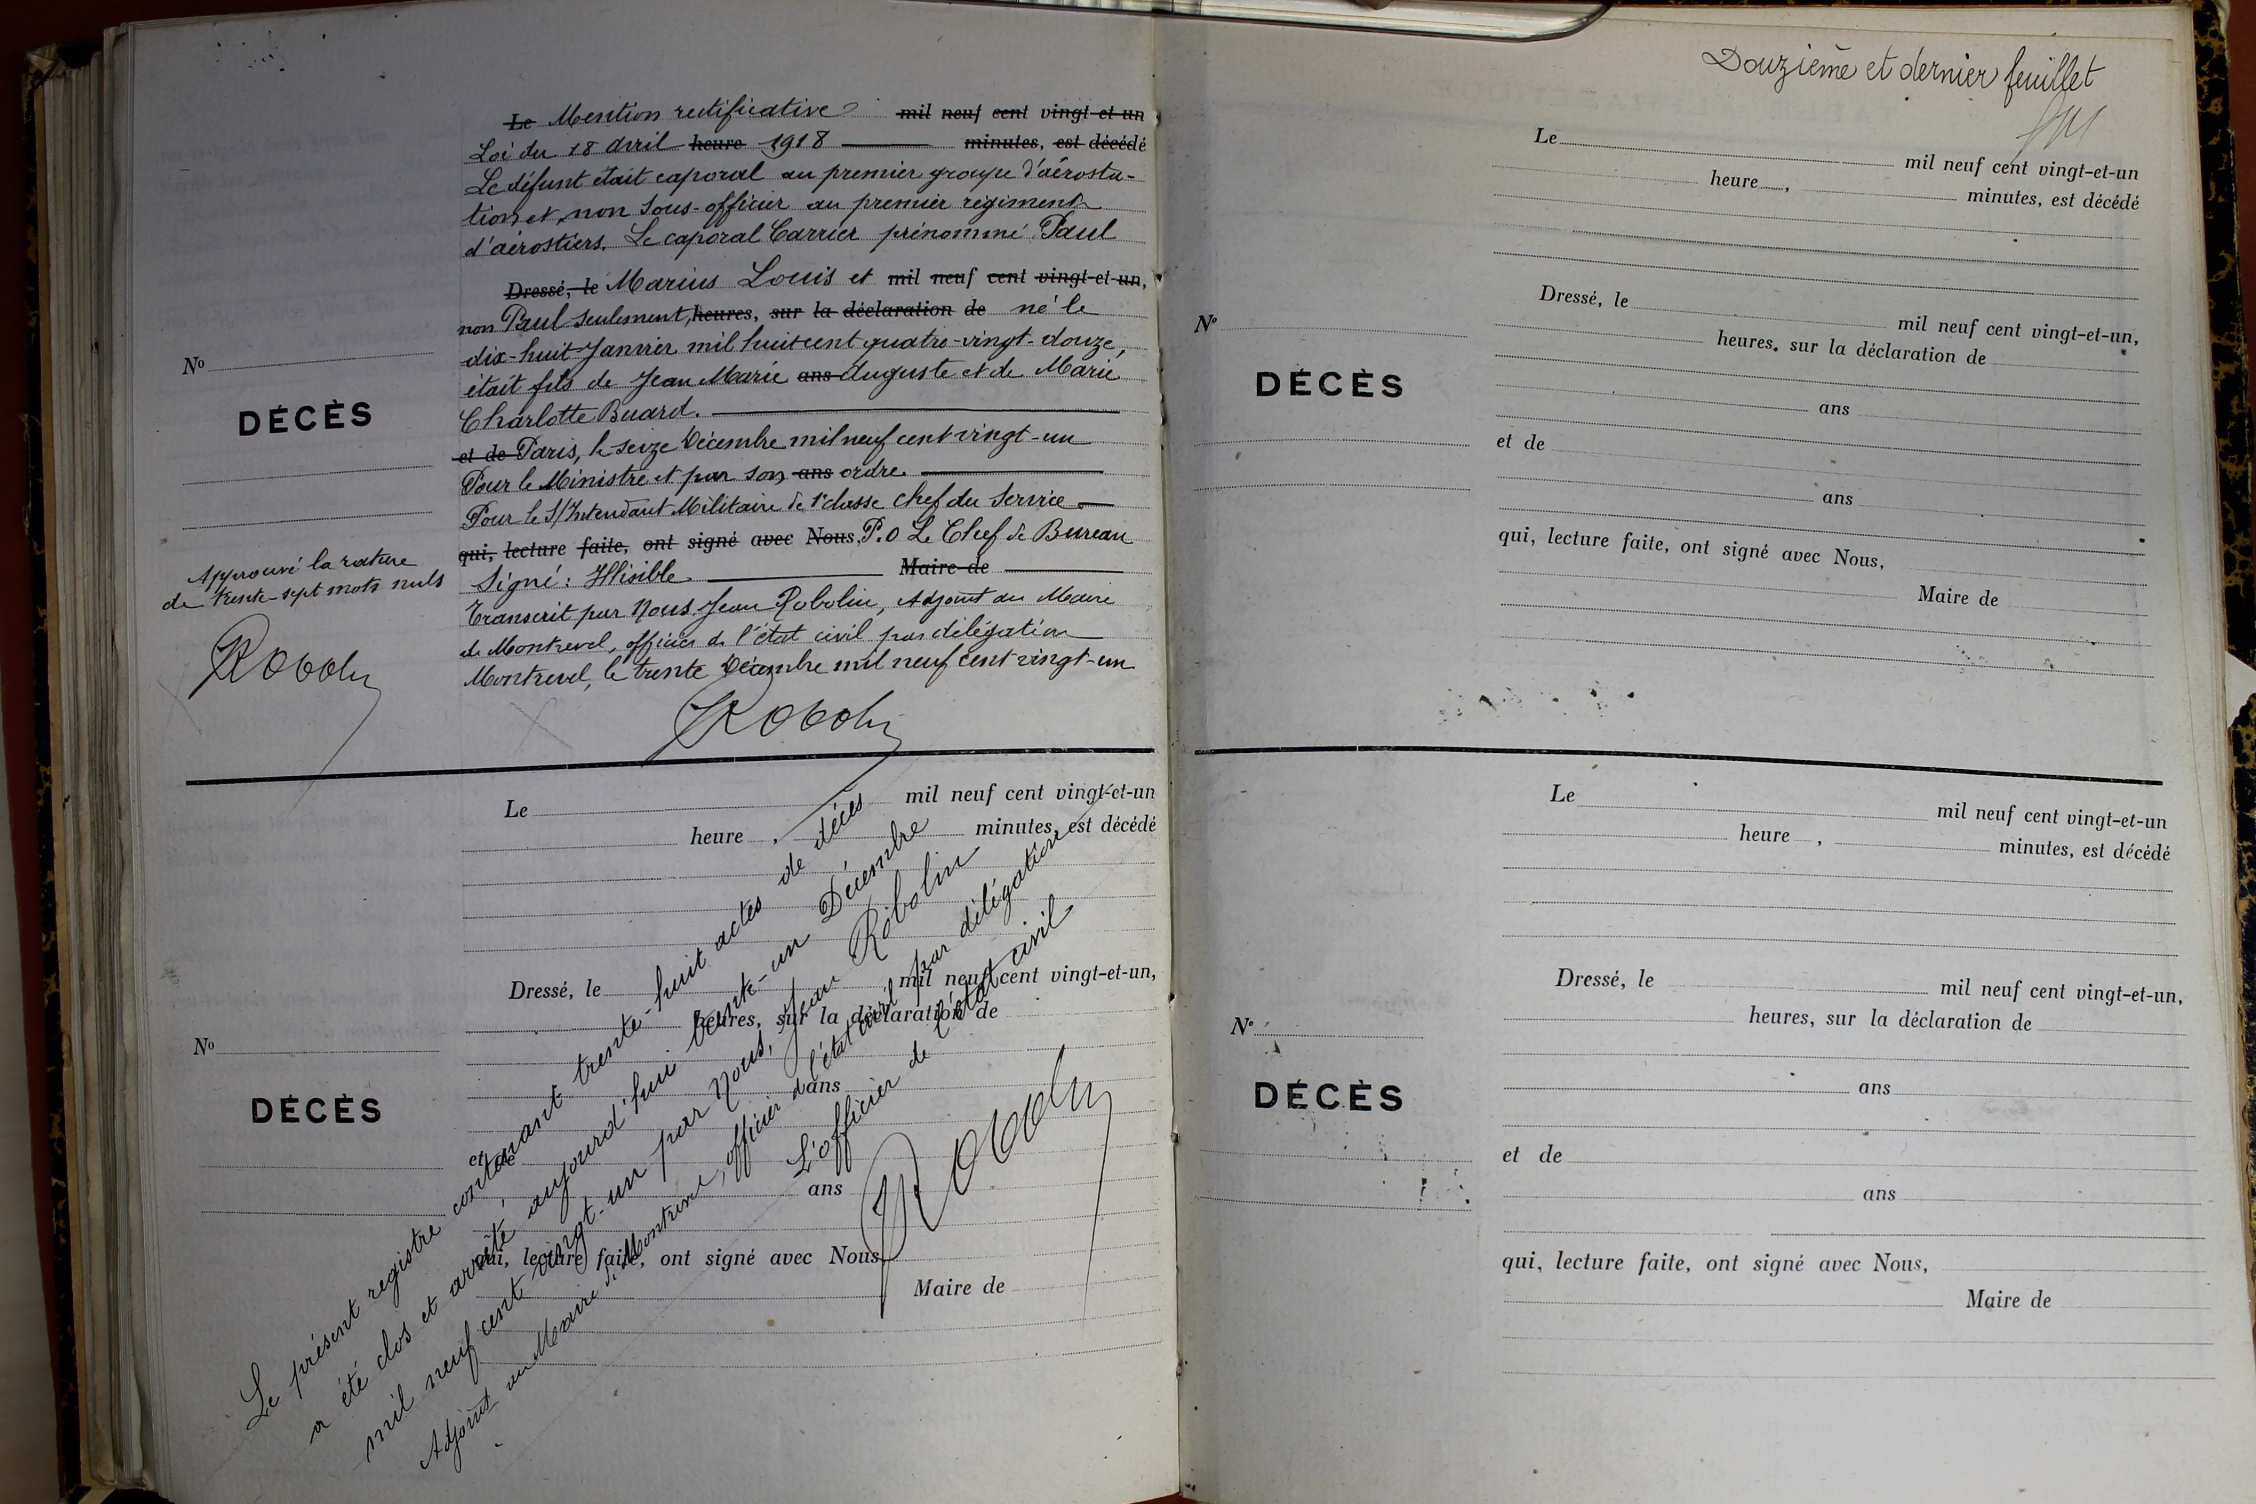 Le Mention rectificative mil neuf cent vingt-et-un
Loi du 18 Avril heure 1918 minutes, est décédé
Le défunt était caporal au premier groupe d'aérosta-
tion et non sous-officier au premier régiment
d'aérostiers. Le caporal Carrier prénommé Paul
Dressé, le Marius Louis et mil neuf cent vingt-et-un,
non Paul seulement, heures, sur la déclaration de né le
dix-huit Janvier mil huit cent quatre-vingt-douze,
était fils de Jean Marie ans Auguste et de Marie
Charlotte Buard.
et de Paris, le seize Décembre mil neuf cent vingt-un
Pour le Ministre et par son ans ordre.
Pour le S/Intendant Militaire de 1e classe Chef du Service
qui, lecture faite, ont signé avec Nous, P.O Le Chef de Bureau
Signé: Illisible Maire de
Transcrit par Nous Jean Robolin, Adjoint au Maire
de Montrevel, officier de l'état civil par délégation
Montrevel, le trente Décembre mil neuf cent vingt-un
JRobolin
No
DÉCÈS
Approuvé la rature
de trente sept mots nuls
JRobolin
Le mil neuf cent vingt-et-un
heure , minutes, est décédé
Dressé, le mil neuf cent vingt-et-un,
heures, sur la déclaration de
ans
et de
ans
qui, lecture faite, ont signé avec Nous,
Maire de
No
DÉCÈS
Le présent registre contenant trente-huit actes de décès
a été clos et arrêté aujourd'hui trente-un Décembre
mil neuf cent vingt-un par Nous, Jean Robolin
Adjoint au Maire de Montrevel, officier de l'état civil par délégation
L'officier de l'état civil
JRobolin
Douzième et dernier feuillet
Le mil neuf cent vingt-et-un
heure , minutes, est décédé
Dressé, le mil neuf cent vingt-et-un,
heures, sur la déclaration de
No
DÉCÈS
ans
et de
ans
qui, lecture faite, ont signé avec Nous,
Maire de
Le mil neuf cent vingt-et-un
heure , minutes, est décédé
Dressé, le mil neuf cent vingt-et-un,
heures, sur la déclaration de
No
DÉCÈS
ans
et de
ans
qui, lecture faite, ont signé avec Nous,
Maire de